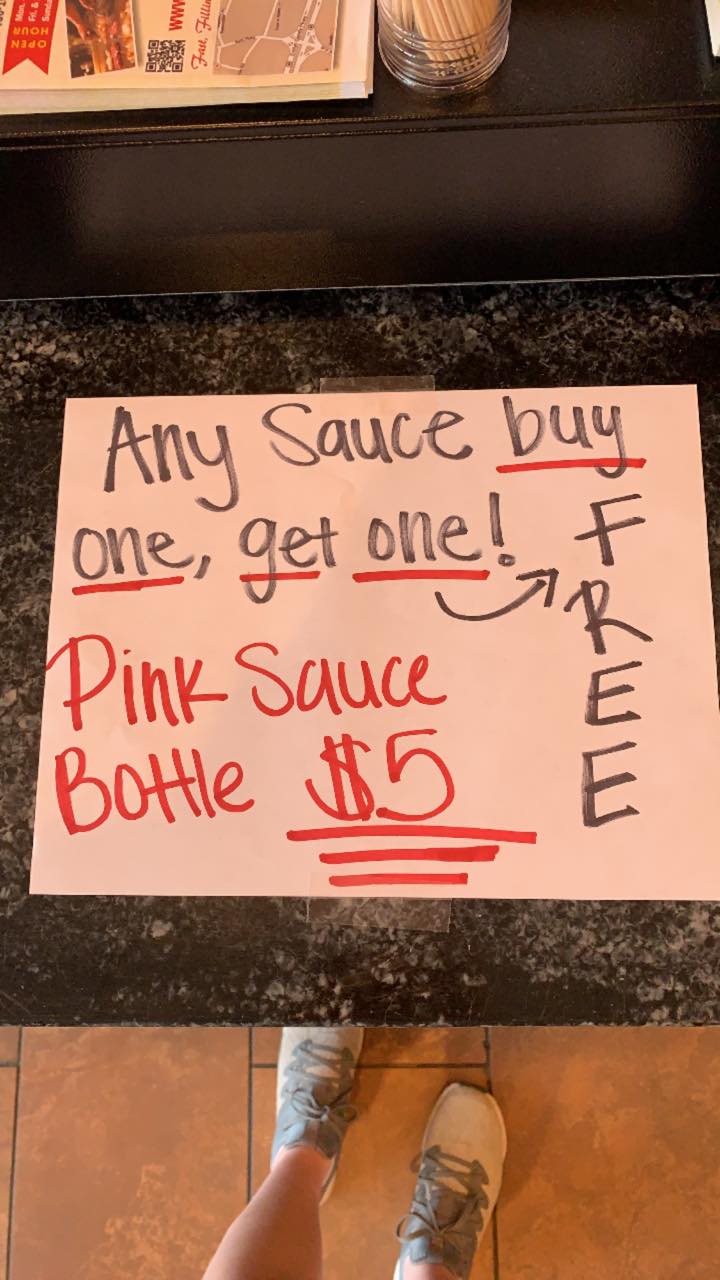 OPEN
HOUR
Mon.
Fri. &
Sunda
WWW
Any Sauce buy
one, get one!
FREE
Pink Sauce
Bottle $5